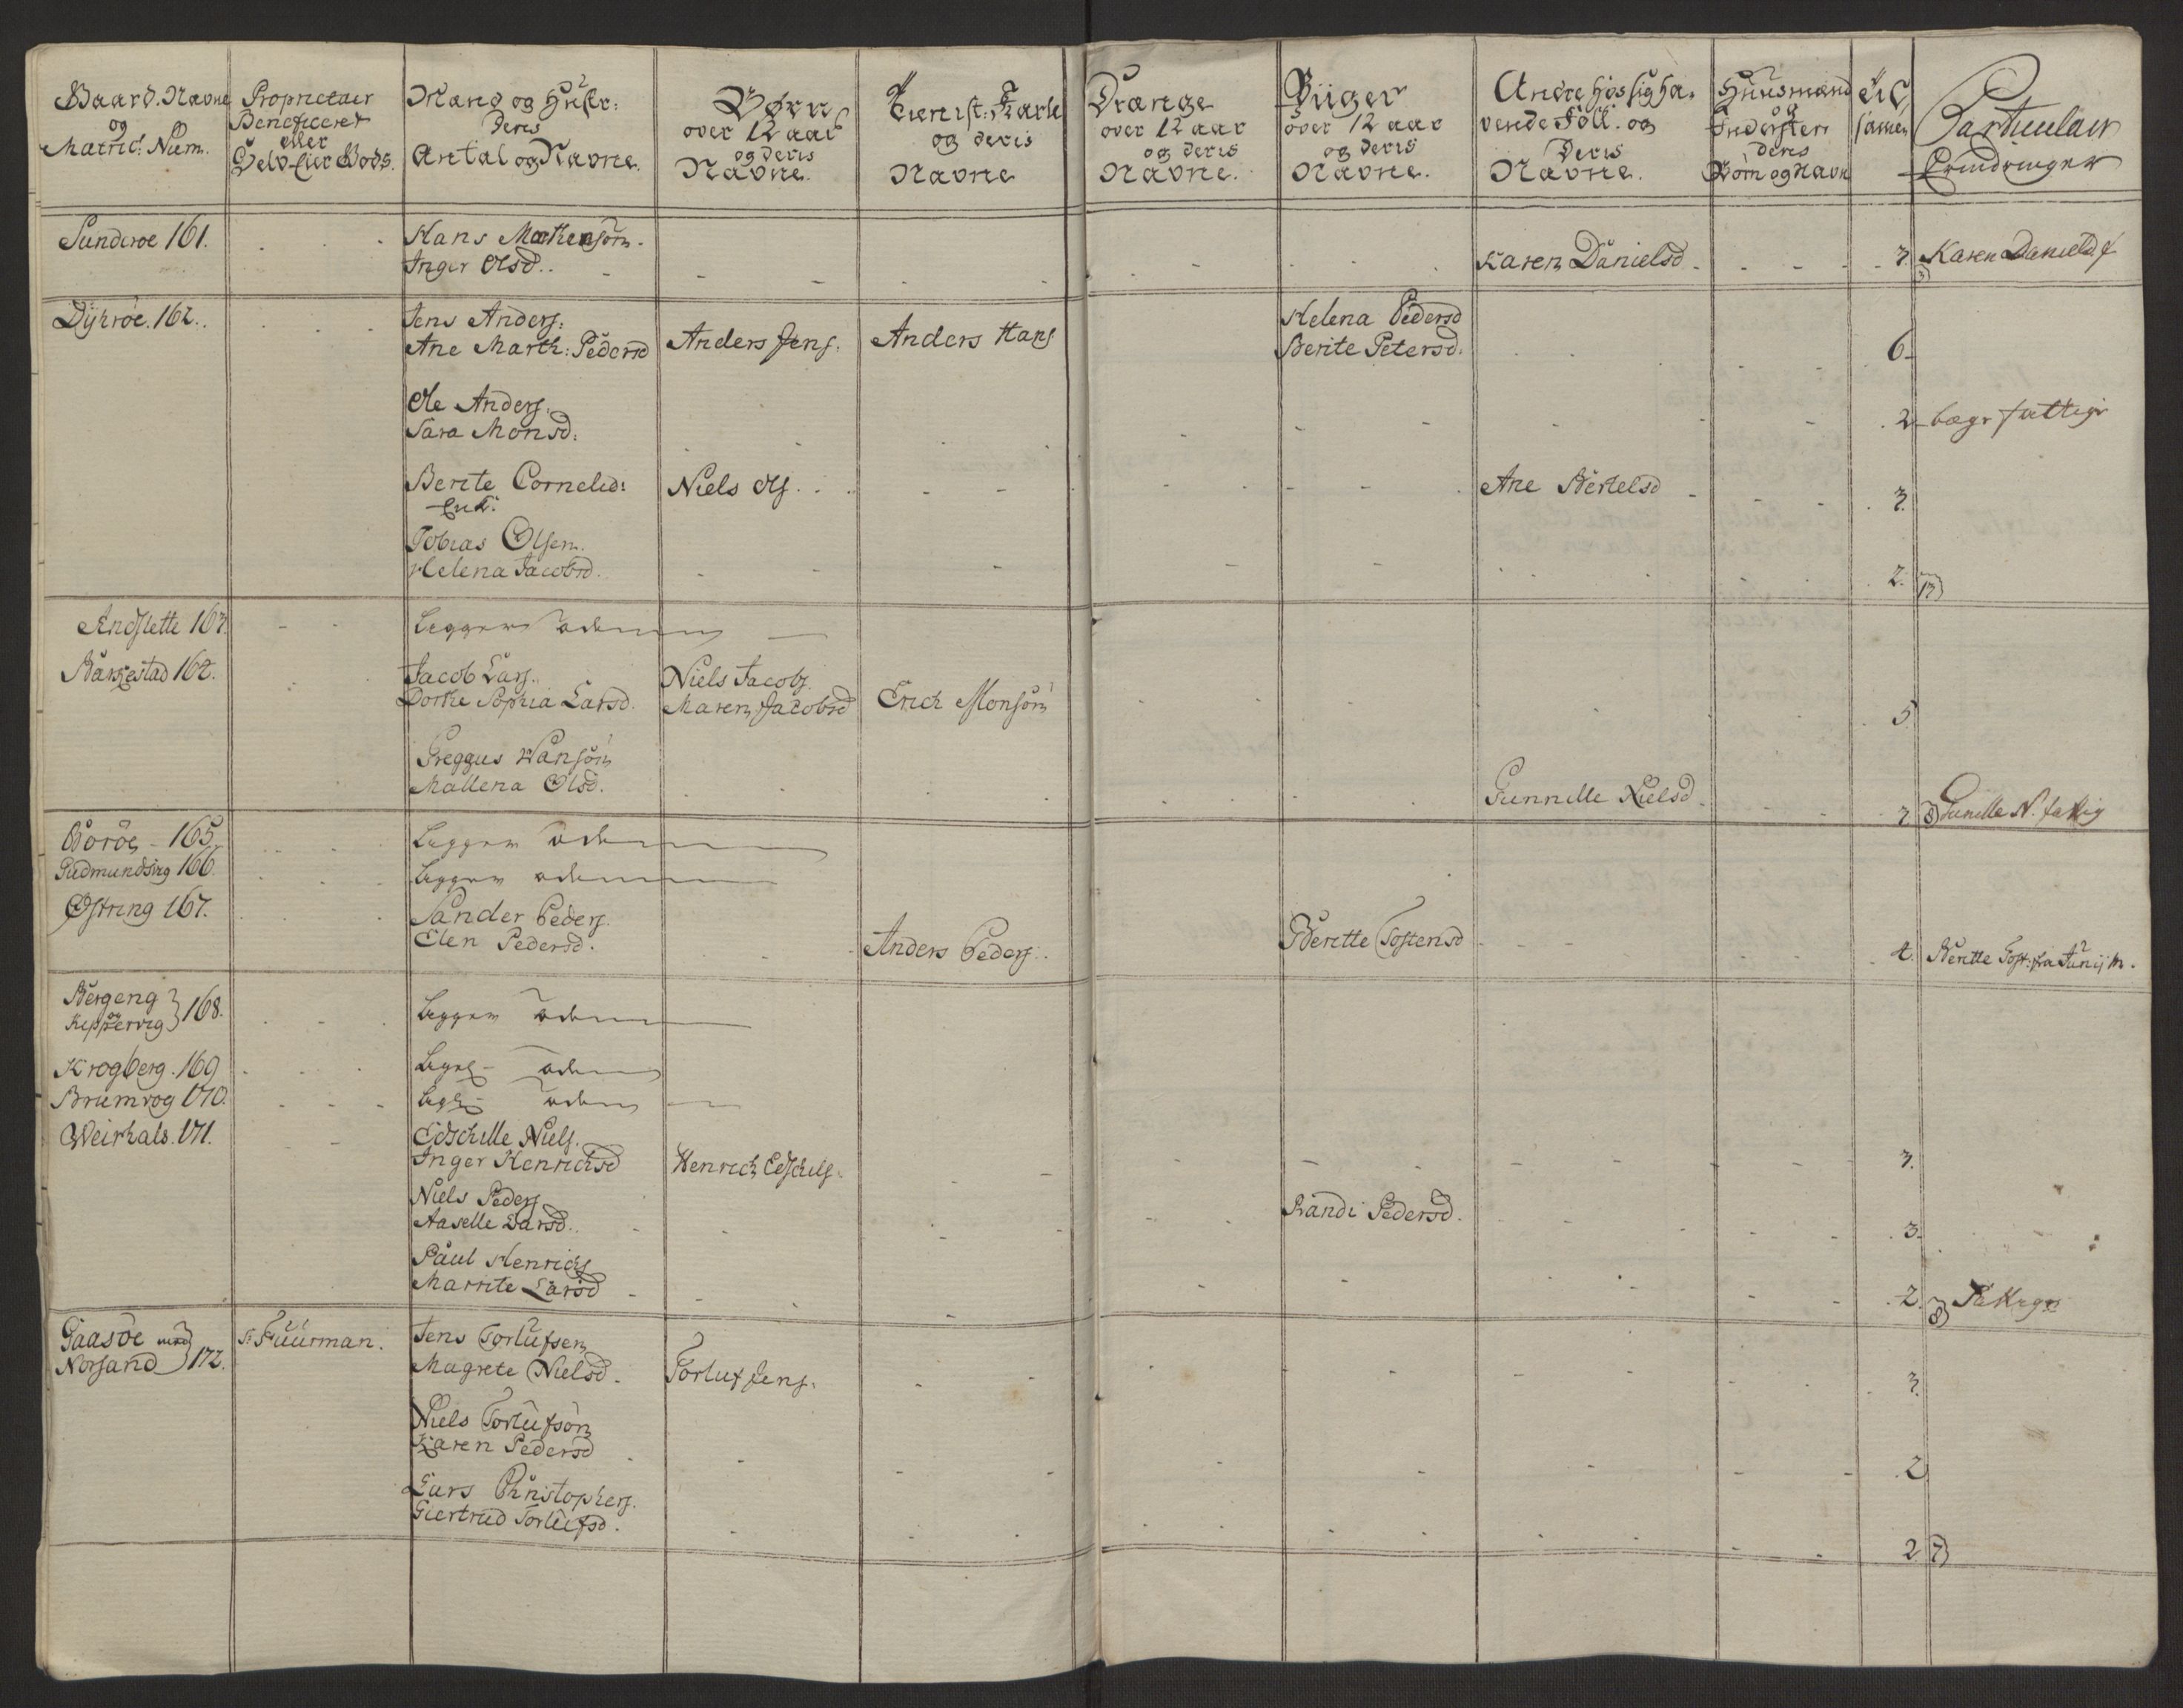 Gaard. Navne
og
Matric: Num.
Proprietair
Beneficeret
eller
Selv-Eier Gods.
Mand og Hustr:
Deres
Antal og Navne.
Børn
over 12 aar
og deris
Navne.
Tienist: Karle
og deris
Navne
Drænge
over 12 aar
og deris
Navne.
Piiger
over 12 aar
og deris
Navne.
Andre hos sig ha-
vende Folk. og
Deris
Navne.
Huusmænd
og
Inderster
deres
Børn og Navne
Til
samen
Particulair
Erindringer
Sunderoe 161.
Hans Mathensøn.
Inger Olsd.
Karen Danielsd.
3.
Karen Danielsd. f
3)
Dyrøe. 162.
Jens Anders:
Helena Pedersd
Ane Marth: Pedersd
Anders Jens.
Anders Hans
Berite Petersd:
6
Ole Anders.
Sara Monsd:
2
begr fattige
Berite Cornelid:
Enk:
Niels Ols.
Ane Bertelsd
3.
Tobias Olsen.
Helena Jacobsd.
2.
13)
Andslette 163.
Legger øde
Barkestad 164.
Jacob Lars.
Niels Jacobs.
Dorthe Sophia Larsd.
Maren Jacobsd
Erich Monsøn
5
Greggus Hansøn
Mallena Olsd.
Gunnille Nielsd.
3
8)
Gunille N. fattig
Borøe - 165.
Legger øde
Gudmundsing 166.
Legger øde
Østring 167.
Sander Peders.
Elen Pedersd.
Anders Peders.
Berette Tostensd
4.
Berette Tost: fra Junij M.
Bergeng
og
Keppervig } 168.
Legger øde
Krogberg. 169
Legg øde
Brumvog 170.
Legg øde
Weirhals. 171.
Edschille Niels.
Inger Henrichsd
Henrich Edschils.
3.
Niels Peders
Aaselle Larsd.
Randi Pedersd.
3.
Paul Henrichs
Marrite Larsd
2.
8)
Fattige
Gaasøe med
Norsand } 172.
Sr Fuurman.
Jens Torlufsen
Magrete Nielsd.
Torluf Jens.
3.
Niels Torlufsøn
Karen Pedersd
2
Lars Christophers.
Giertrud Torlufsd.
2
7)